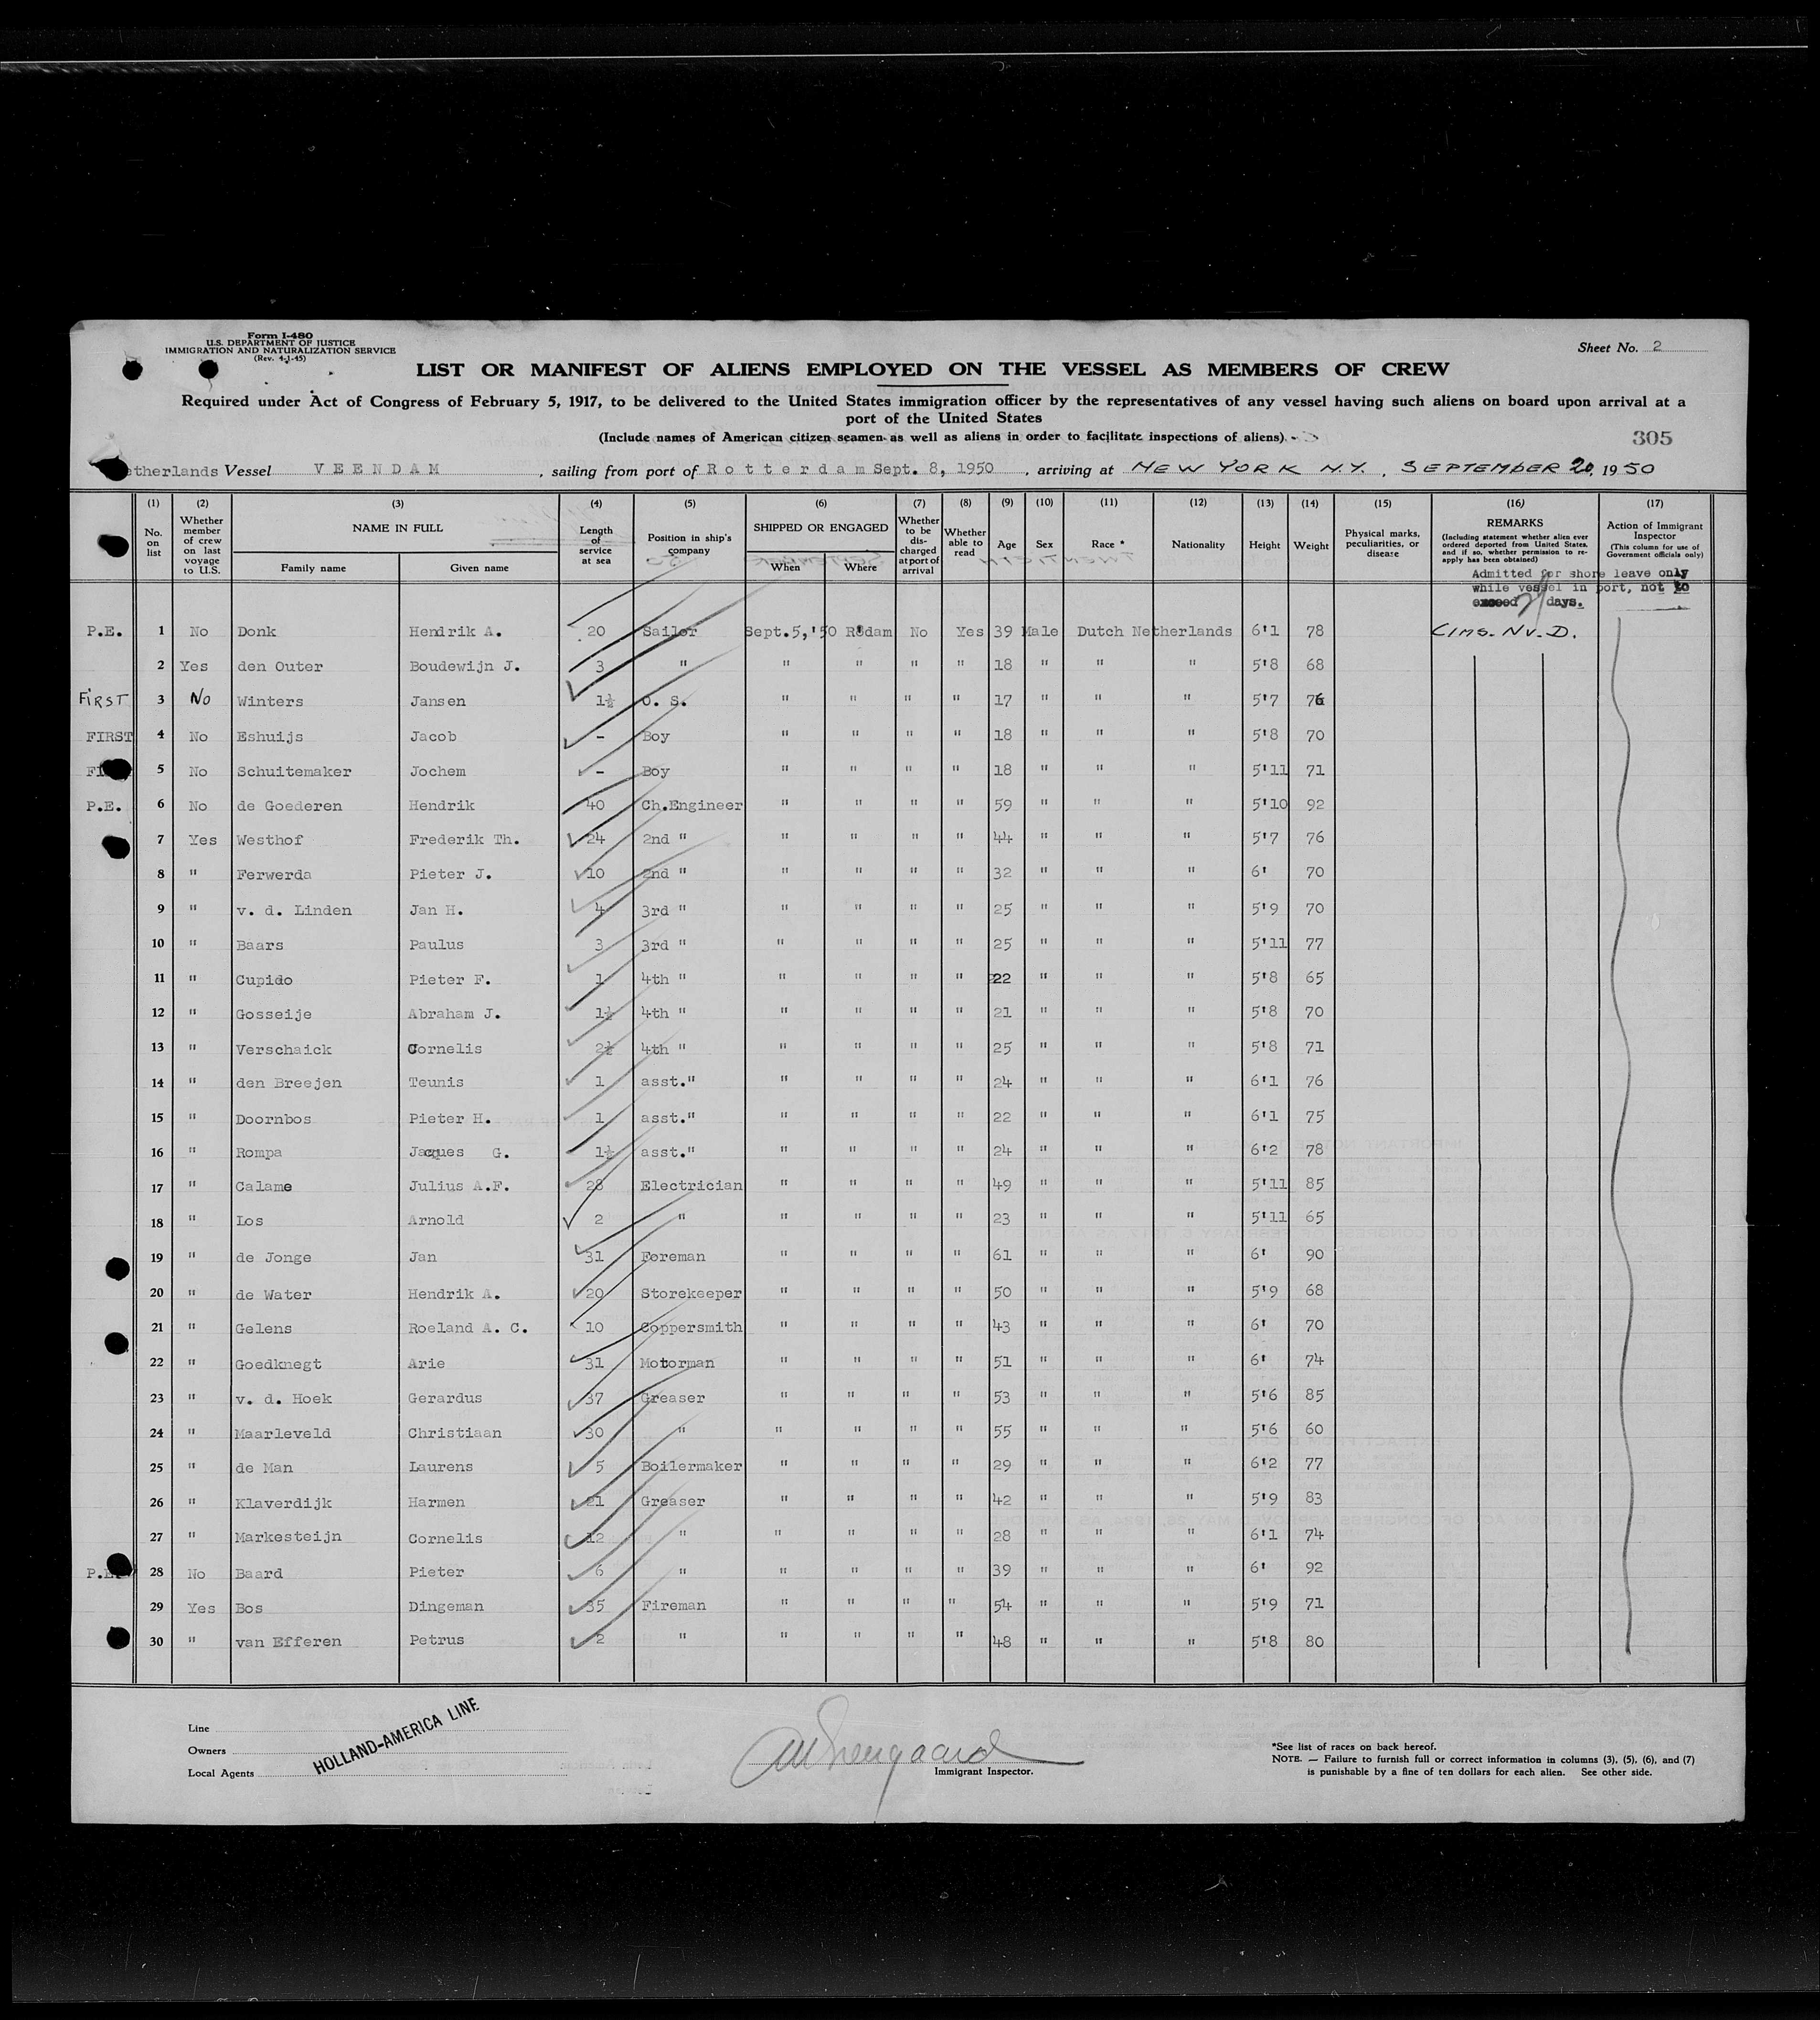 Form I-480
U.S. DEPARTMENT OF JUSTICE
IMMIGRATION AND NATURALIZATION SERVICE
(Rev. 4-1-45)
Sheet No. 2
LIST OR MANIFEST OF ALIENS EMPLOYED ON THE VESSEL AS MEMBERS OF CREW
Required under Act of Congress of February 5, 1917, to be delivered to the United States immigration officer by the representatives of any vessel having such aliens on board upon arrival at a
port of the United States
(Include names of American citizen seamen as well as aliens in order to facilitate inspections of aliens)
305
etherlands Vessel VEENDAM, sailing from port of Rotterdam Sept. 8, 1950, arriving at NEW YORK N.Y., SEPTEMBER 20, 1950
(1) No. on list (2) Whether member of crew on last voyage to U.S. (3) NAME IN FULL Family name Given name (4) Length of service at sea (5) Position in ship's company (6) SHIPPED OR ENGAGED When Where (7) Whether to be discharged at port of arrival (8) Whether able to read (9) Age (10) Sex (11) Race * (12) Nationality (13) Height (14) Weight (15) Physical marks, peculiarities, or disease (16) REMARKS (Including statement whether alien ever ordered deported from United States, and if so, whether permission to re-apply has been obtained) (17) Action of Immigrant Inspector (This column for use of Government officials only)
Admitted for shore leave only
while vessel in port, not to
exceed 29 days.
P.E. 1 No Donk Hendrik A. 20 Sailor Sept.5,'50 R'dam No Yes 39 Male Dutch Netherlands 6'1 78
2 Yes den Outer Boudewijn J. 3 " " " " " 18 " " " 5'8 68
FIRST 3 No Winters Jansen 1½ O. S. " " " " 17 " " " 5'7 76
FIRST 4 No Eshuijs Jacob - Boy " " " " 18 " " " 5'8 70
5 No Schuitemaker Jochem - Boy " " " " 18 " " " 5'11 71
P.E. 6 No de Goederen Hendrik 40 Ch.Engineer " " " " 59 " " " 5'10 92
7 Yes Westhof Frederik Th. 24 2nd " " " " " 44 " " " 5'7 76
8 " Ferwerda Pieter J. 10 2nd " " " " " 32 " " " 6' 70
9 " v. d. Linden Jan H. 4 3rd " " " " " 25 " " " 5'9 70
10 " Baars Paulus 3 3rd " " " " " 25 " " " 5'11 77
11 " Cupido Pieter F. 1 4th " " " " " 22 " " " 5'8 65
12 " Gosseije Abraham J. 1½ 4th " " " " " 21 " " " 5'8 70
13 " Verschaick Cornelis 2½ 4th " " " " " 25 " " " 5'8 71
14 " den Breejen Teunis 1 asst." " " " " 24 " " " 6'1 76
15 " Doornbos Pieter H. 1 asst." " " " " 22 " " " 6'1 75
16 " Rompa Jacques G. 1½ asst." " " " " 24 " " " 6'2 78
17 " Calame Julius A.F. 28 Electrician " " " " 49 " " " 5'11 85
18 " Los Arnold 2 " " " " " 23 " " " 5'11 65
19 " de Jonge Jan 31 Foreman " " " " 61 " " " 6' 90
20 " de Water Hendrik A. 20 Storekeeper " " " " 50 " " " 5'9 68
21 " Gelens Roeland A. C. 10 Coppersmith " " " " 43 " " " 6' 70
22 " Goedknegt Arie 31 Motorman " " " " 51 " " " 6' 74
23 " v. d. Hoek Gerardus 37 Greaser " " " " 53 " " " 5'6 85
24 " Maarleveld Christiaan 30 " " " " " 55 " " " 5'6 60
25 " de Man Laurens 5 Boilermaker " " " " 29 " " " 6'2 77
26 " Klaverdijk Harmen 21 Greaser " " " " 42 " " " 5'9 83
27 " Markesteijn Cornelis 12 " " " " " 28 " " " 6'1 74
28 No Baard Pieter 6 " " " " " 39 " " " 6' 92
29 Yes Bos Dingeman 35 Fireman " " " " 54 " " " 5'9 71
30 " van Efferen Petrus 2 " " " " " 48 " " " 5'8 80
Line
Owners
Local Agents
HOLLAND-AMERICA LINE
Immigrant Inspector.
*See list of races on back hereof.
NOTE. — Failure to furnish full or correct information in columns (3), (5), (6), and (7)
is punishable by a fine of ten dollars for each alien. See other side.